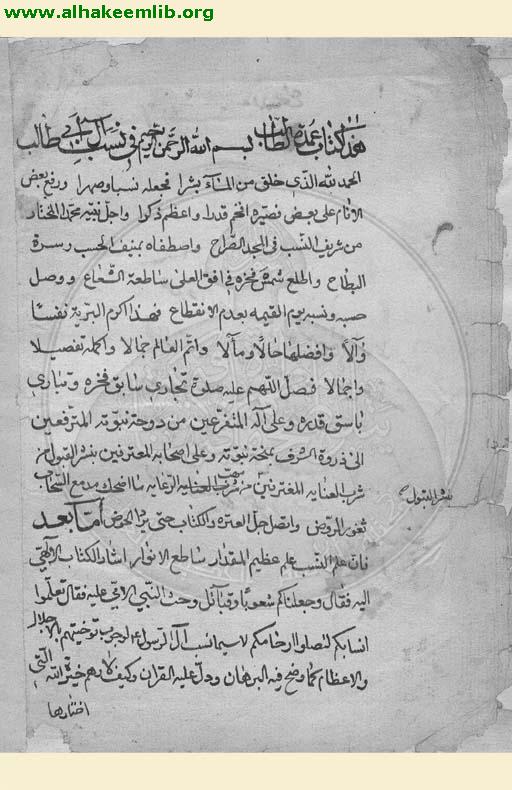 www.alhakeemlib.org
هذا كتاب عمدة الطالب بسم الله الرحمن الرحيم في نسب آل ابي طالب
الحمد لله الذي خلق من المآء بشرا فجعله نسبا وصهرا ورفع بعض
الأنام على بعض فصيّره افخم قدرا واعظم ذكرا واجلّ نبيّه محمّد المختار
من شريف النسب في المجد الصّراح واصطفاه بمنيف الحسب وسرة
البطاح واطلع شمس فخره في افق العلى ساطعة الشعاع ووصل
حسبه ونسبه يوم القيمه بعدم الانقطاع فهذا اكرم البريّة نفسًا
وآلًا وافضلها حالًا ومآلا واتم العالم جمالا واكمله تفصيلا
واجمالا فصلّ اللّهم عليه صلوة تجاري سابق فخره وتباري
باسق قدره وعلى آله المتفرّعين من دوحة نبوّته المترفعين
الى ذروة الشرف بمنحة نبوّته وعلى اصحابه المعترفين بنشر القبول من
شرب العنايه المغترفين من شرب الرعايه ما اضحك مدمع السّحاب
نشر القبول
ثغور الروض واتصل حبل العترة والكتاب حتى يردا الحوض أمّا بعد
فان علم النّسب علم عظيم المقدار ساطع الانوار اشار الكتاب الالهيّ
اليه فقال وجعلناكم شعوبًا وقبآئل وحث النّبي الامّي عليه فقال تعلّموا
انسابكم لتصلوا ارحامكم لا سيما نسب آل الرّسول ع لوجوب توخيهم بالاجلال
والاعظام كما وضح فيه البرهان ودلّ عليه القرآن وكيف لا وهم خيرة الله الّتي
اختارها